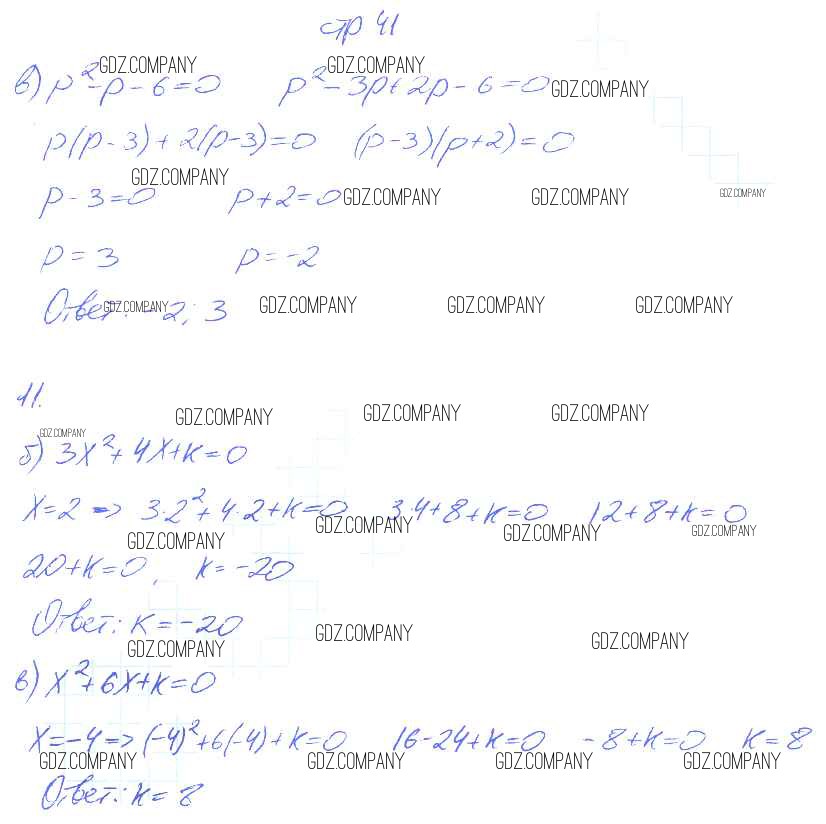 стр 41
GDZ.COMPANY GDZ.COMPANY GDZ.COMPANY
в) p² - p - 6 = 0 p² - 3p + 2p - 6 = 0
p(p - 3) + 2(p - 3) = 0 (p - 3)(p + 2) = 0
GDZ.COMPANY GDZ.COMPANY GDZ.COMPANY GDZ.COMPANY
p - 3 = 0 p + 2 = 0
p = 3 p = -2
Ответ: -2; 3
GDZ.COMPANY GDZ.COMPANY GDZ.COMPANY GDZ.COMPANY
11.
GDZ.COMPANY GDZ.COMPANY GDZ.COMPANY GDZ.COMPANY
б) 3x² + 4x + k = 0
x = 2 => 3·2² + 4·2 + k = 0 3·4 + 8 + k = 0 12 + 8 + k = 0
GDZ.COMPANY GDZ.COMPANY GDZ.COMPANY GDZ.COMPANY
20 + k = 0, k = -20
Ответ: k = -20
GDZ.COMPANY GDZ.COMPANY GDZ.COMPANY
в) x² + 6x + k = 0
x = -4 => (-4)² + 6(-4) + k = 0 16 - 24 + k = 0 -8 + k = 0 k = 8
GDZ.COMPANY GDZ.COMPANY GDZ.COMPANY GDZ.COMPANY
Ответ: k = 8